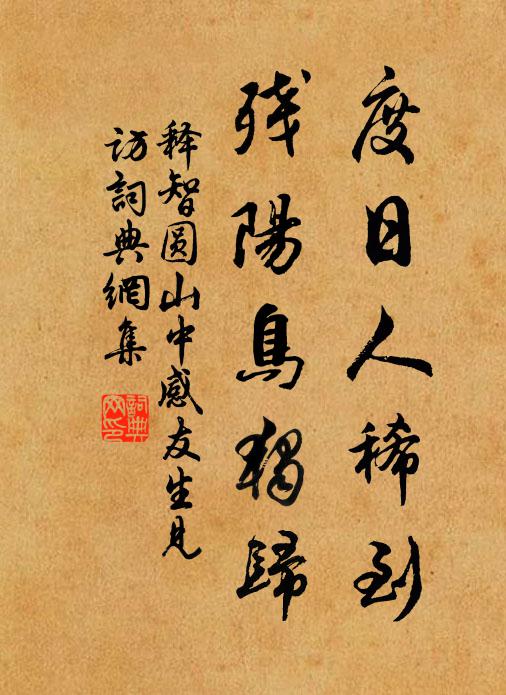 度日人稀到
残陽鳥獨歸
释智圆山中感友生見
访詞典網集
詞典網印